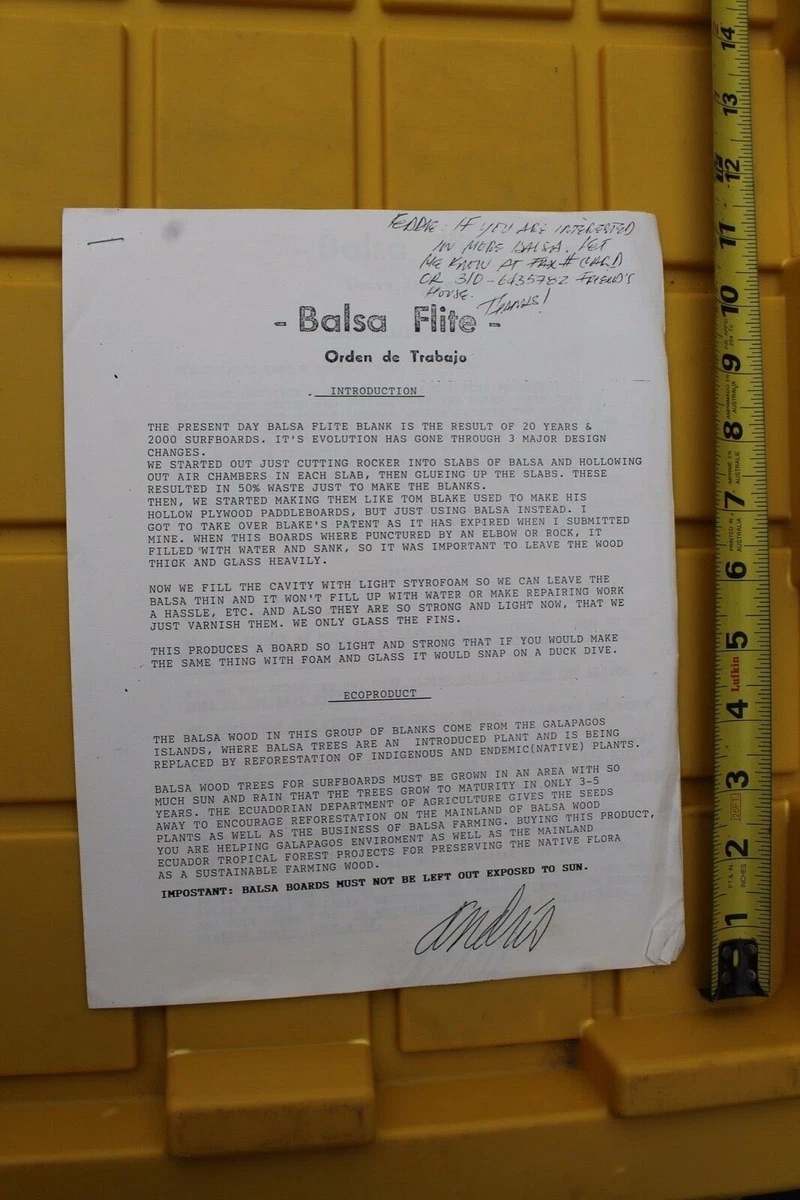 EDDIE IF YOU ARE INTERESTED
IN MORE BALSA. LET
ME KNOW AT FAX # (CARD)
OR 310-6435782 FRIEND'S
HOUSE. THANKS!
- Balsa Flite -
Orden de Trabajo
INTRODUCTION
THE PRESENT DAY BALSA FLITE BLANK IS THE RESULT OF 20 YEARS &
2000 SURFBOARDS. IT'S EVOLUTION HAS GONE THROUGH 3 MAJOR DESIGN
CHANGES.
WE STARTED OUT JUST CUTTING ROCKER INTO SLABS OF BALSA AND HOLLOWING
OUT AIR CHAMBERS IN EACH SLAB, THEN GLUEING UP THE SLABS. THESE
RESULTED IN 50% WASTE JUST TO MAKE THE BLANKS.
THEN, WE STARTED MAKING THEM LIKE TOM BLAKE USED TO MAKE HIS
HOLLOW PLYWOOD PADDLEBOARDS, BUT JUST USING BALSA INSTEAD. I
GOT TO TAKE OVER BLAKE'S PATENT AS IT HAS EXPIRED WHEN I SUBMITTED
MINE. WHEN THIS BOARDS WHERE PUNCTURED BY AN ELBOW OR ROCK, IT
FILLED WITH WATER AND SANK, SO IT WAS IMPORTANT TO LEAVE THE WOOD
THICK AND GLASS HEAVILY.
NOW WE FILL THE CAVITY WITH LIGHT STYROFOAM SO WE CAN LEAVE THE
BALSA THIN AND IT WON'T FILL UP WITH WATER OR MAKE REPAIRING WORK
A HASSLE, ETC. AND ALSO THEY ARE SO STRONG AND LIGHT NOW, THAT WE
JUST VARNISH THEM. WE ONLY GLASS THE FINS.
THIS PRODUCES A BOARD SO LIGHT AND STRONG THAT IF YOU WOULD MAKE
THE SAME THING WITH FOAM AND GLASS IT WOULD SNAP ON A DUCK DIVE.
ECOPRODUCT
THE BALSA WOOD IN THIS GROUP OF BLANKS COME FROM THE GALAPAGOS
ISLANDS, WHERE BALSA TREES ARE AN INTRODUCED PLANT AND IS BEING
REPLACED BY REFORESTATION OF INDIGENOUS AND ENDEMIC(NATIVE) PLANTS.
BALSA WOOD TREES FOR SURFBOARDS MUST BE GROWN IN AN AREA WITH SO
MUCH SUN AND RAIN THAT THE TREES GROW TO MATURITY IN ONLY 3-5
YEARS. THE ECUADORIAN DEPARTMENT OF AGRICULTURE GIVES THE SEEDS
AWAY TO ENCOURAGE REFORESTATION ON THE MAINLAND OF BALSA WOOD
PLANTS AS WELL AS THE BUSINESS OF BALSA FARMING. BUYING THIS PRODUCT,
YOU ARE HELPING GALAPAGOS ENVIROMENT AS WELL AS THE MAINLAND
ECUADOR TROPICAL FOREST PROJECTS FOR PRESERVING THE NATIVE FLORA
AS A SUSTAINABLE FARMING WOOD.
IMPOSTANT: BALSA BOARDS MUST NOT BE LEFT OUT EXPOSED TO SUN.
14
13
12
11
10
9
8
7
6
5
Lufkin
4
3
2
1
INCHES